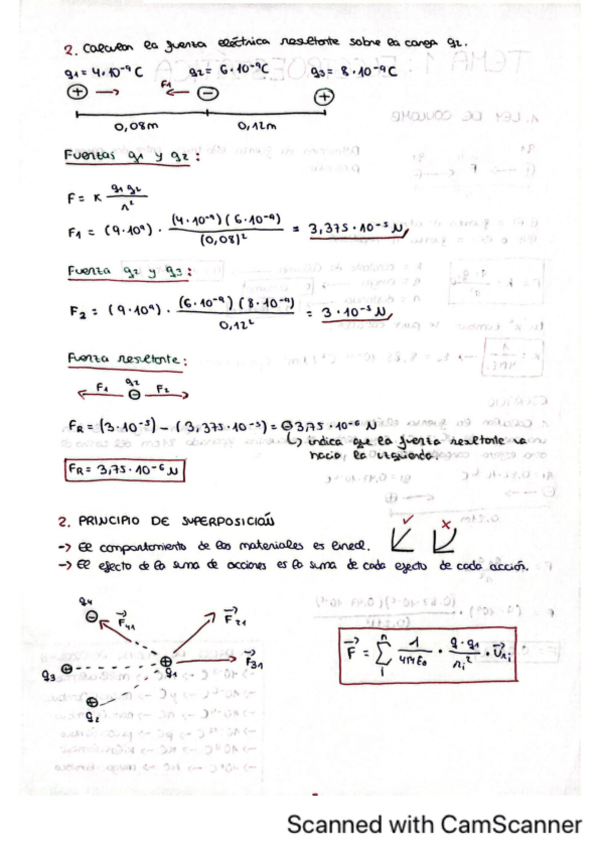 2. Calcular la fuerza eléctrica resultante sobre la carga q2.
q1 = 4·10⁻⁹ C q2 = 6·10⁻⁹C q3 = 8·10⁻⁹C
+ F1 - +
0,08m 0,12m
Fuerzas q1 y q2 :
F = K q1 q2 / r²
F1 = (9·10⁹) · (4·10⁻⁹)(6·10⁻⁹) / (0,08)² = 3,375·10⁻⁵ N
Fuerza q2 y q3 :
F2 = (9·10⁹) · (6·10⁻⁹)(8·10⁻⁹) / 0,12² = 3·10⁻⁵ N
Fuerza resultante :
F1 q2 F2
FR = (3·10⁻⁵) - (3,375·10⁻⁵) = -3,75·10⁻⁶ N
indica que la fuerza resultante va
hacia la izquierda.
FR = 3,75·10⁻⁶ N
2. PRINCIPIO DE SUPERPOSICIÓN
-> El comportamiento de los materiales es lineal.
-> El efecto de la suma de acciones es la suma de cada efecto de cada acción.
q4 F41 F21
q3 q1 F31
q2
F = Σ n i 1 / 4πε0 · q·q1 / ri² · Uri
Scanned with CamScanner